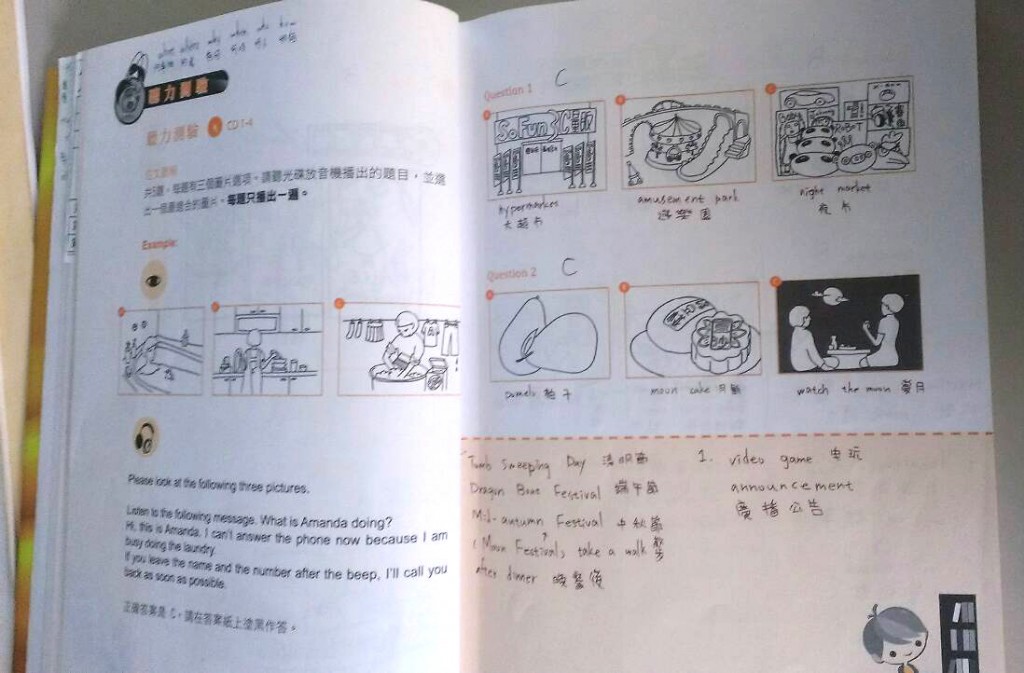 what where why when who how
聽力測驗
聽力測驗 CD1-4
共5題，每題有三個圖片選項。請聽光碟放音機播出的題目，並選
出一個最適合的圖片。每題只播出一遍。
Example:
A
B
C
Please look at the following three pictures.
Listen to the following message. What is Amanda doing?
Hi, this is Amanda. I can't answer the phone now because I am
busy doing the laundry.
If you leave the name and the number after the beep, I'll call you
back as soon as possible.
正確答案是 C，請在答案紙上塗黑作答。
Question 1 C
A
B
C
So Fun 3C
ROBOT
hypermarket
大超市
amusement park
遊樂園
night market
夜市
Question 2 C
A
B
C
pomelo 柚子
moon cake 月餅
watch the moon 賞月
Tomb Sweeping Day 清明節
Dragon Boat Festival 端午節
Mid-autumn Festival 中秋節
(Moon Festival) take a walk 散步
after dinner 晚餐後
1. video game 电玩
announcement
廣播公告